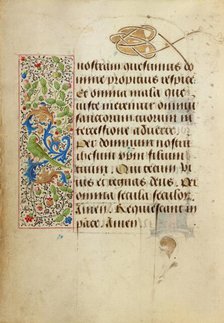 nostram quesumus do
mine propicius respice
Et omnia mala que
iuste meremur omniu
sanctorum tuorum in
tercessione aduerte. 
Per dominum nostru
ihesum xpm filium
tuum Qui tecum
uiuit et regnat deus. Per
omnia secula seculor
Amen. Requiescant in
pace. Amen